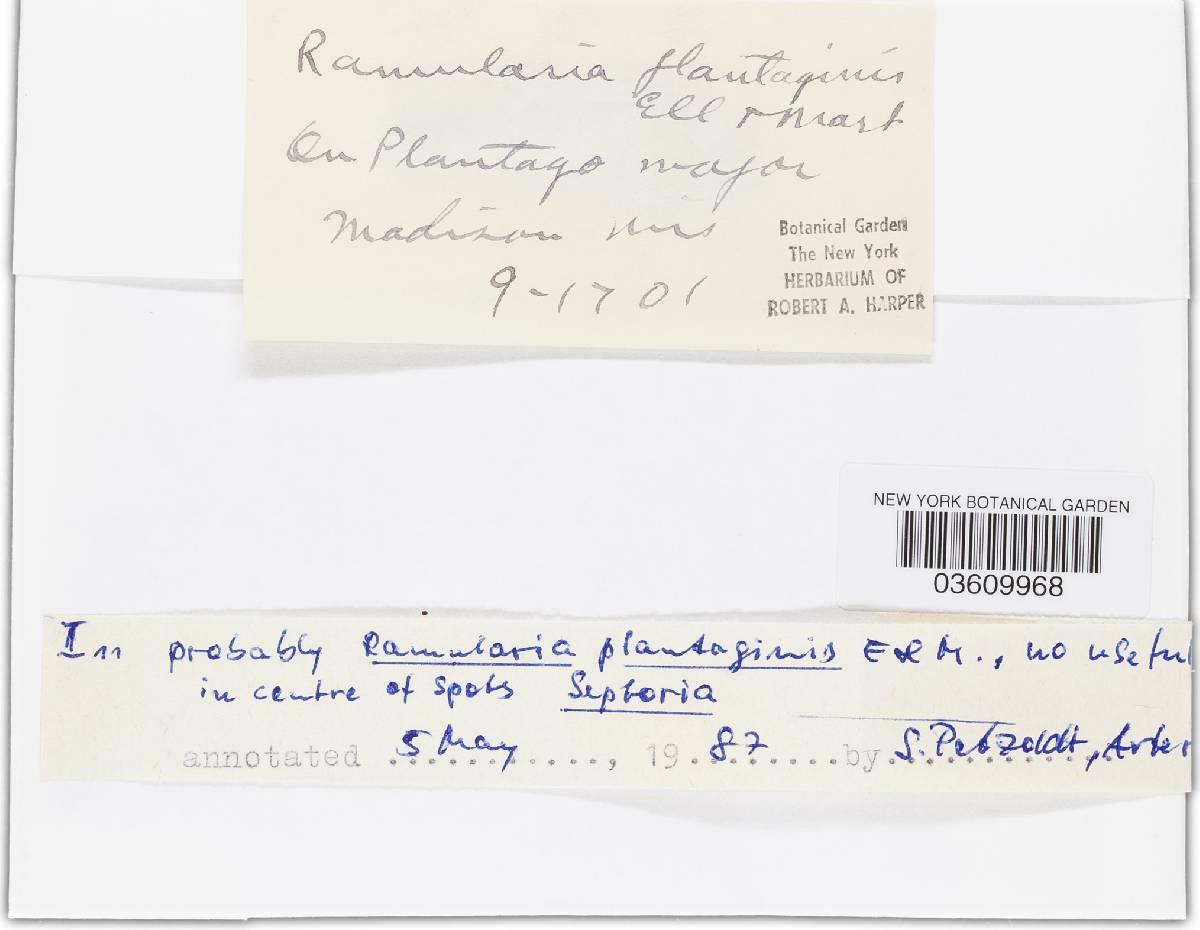 Ramularia plantaginis
Ell & Mart
On Plantago major
Madison Wis
9-17 01
Botanical Garden
The New York
HERBARIUM OF
ROBERT A. HARPER
NEW YORK BOTANICAL GARDEN
03609968
probably Ramularia plantaginis E & M., no useful
in centre of spots Septoria
annotated 5 May, 1987 by S. Petzoldt,